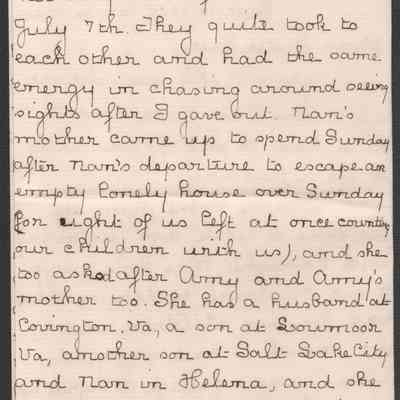 July 7th. They quite took to
each other and had the same
energy in chasing around seeing
sights after I gave out. Nan's
mother came up to spend Sunday
after Nan's departure to escape an
empty lonely house over Sunday
for eight of us left at once counting
our children with us), and she
too asked after Amy and Amy's
mother too. She has a husband at
Covington, Va, a son at Lowmoor
Va, another son at Salt Lake City
and Nan in Helena, and she